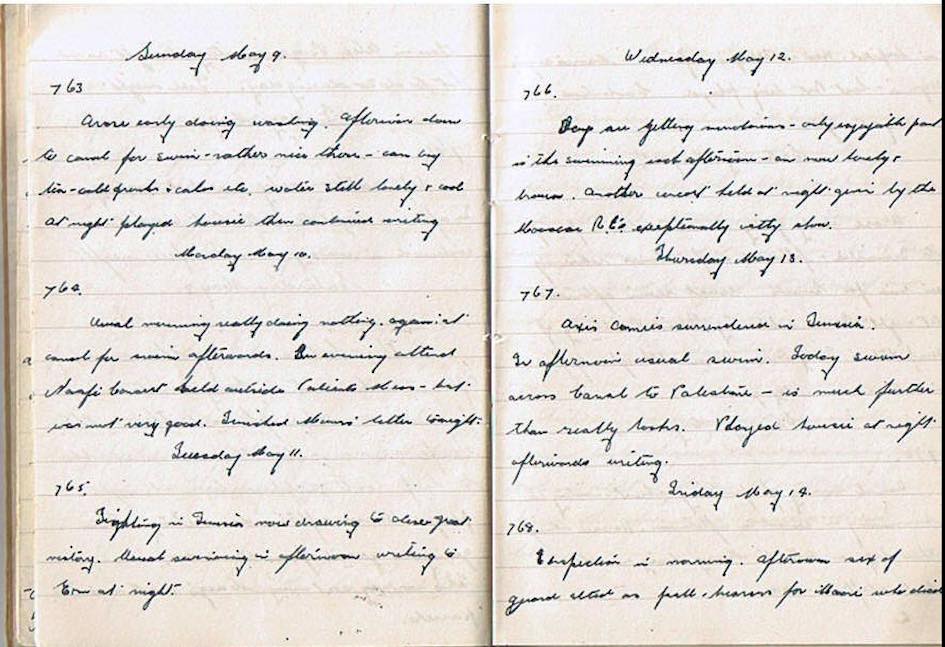 Sunday May 9.
763
Arose early doing washing. Afternoon down
to canal for swim - rather nice there - can buy
tea - cold drinks & cakes etc. water still lovely & cool
At night played housie then continued writing
Monday May 10.
764.
Usual morning really doing nothing. again at
canal for swim afterwards. In evening attend
Naafi Concert held outside Patients Mess - but
was not very good. Finished Mums' letter tonight.
Tuesday May 11.
765.
Fighting in Tunisia now drawing to close great
victory. Usual swimming in afternoon writing to
at night.
Wednesday May 12.
766.
Days are getting monotonous - only enjoyable part
is the swimming each afternoon - am now lovely &
brown. Another concert held at night given by the
Moascar exceptionally witty show.
Thursday May 13.
767.
Axis armies surrendered in Tunisia.
In afternoon usual swim. Today swam
across Canal to Palestine - is much further
than really looks. Played housie at night
afterwards writing.
Friday May 14.
768.
Inspection in morning. Afternoon six of
guard acted as pall-bearers for Maori who died